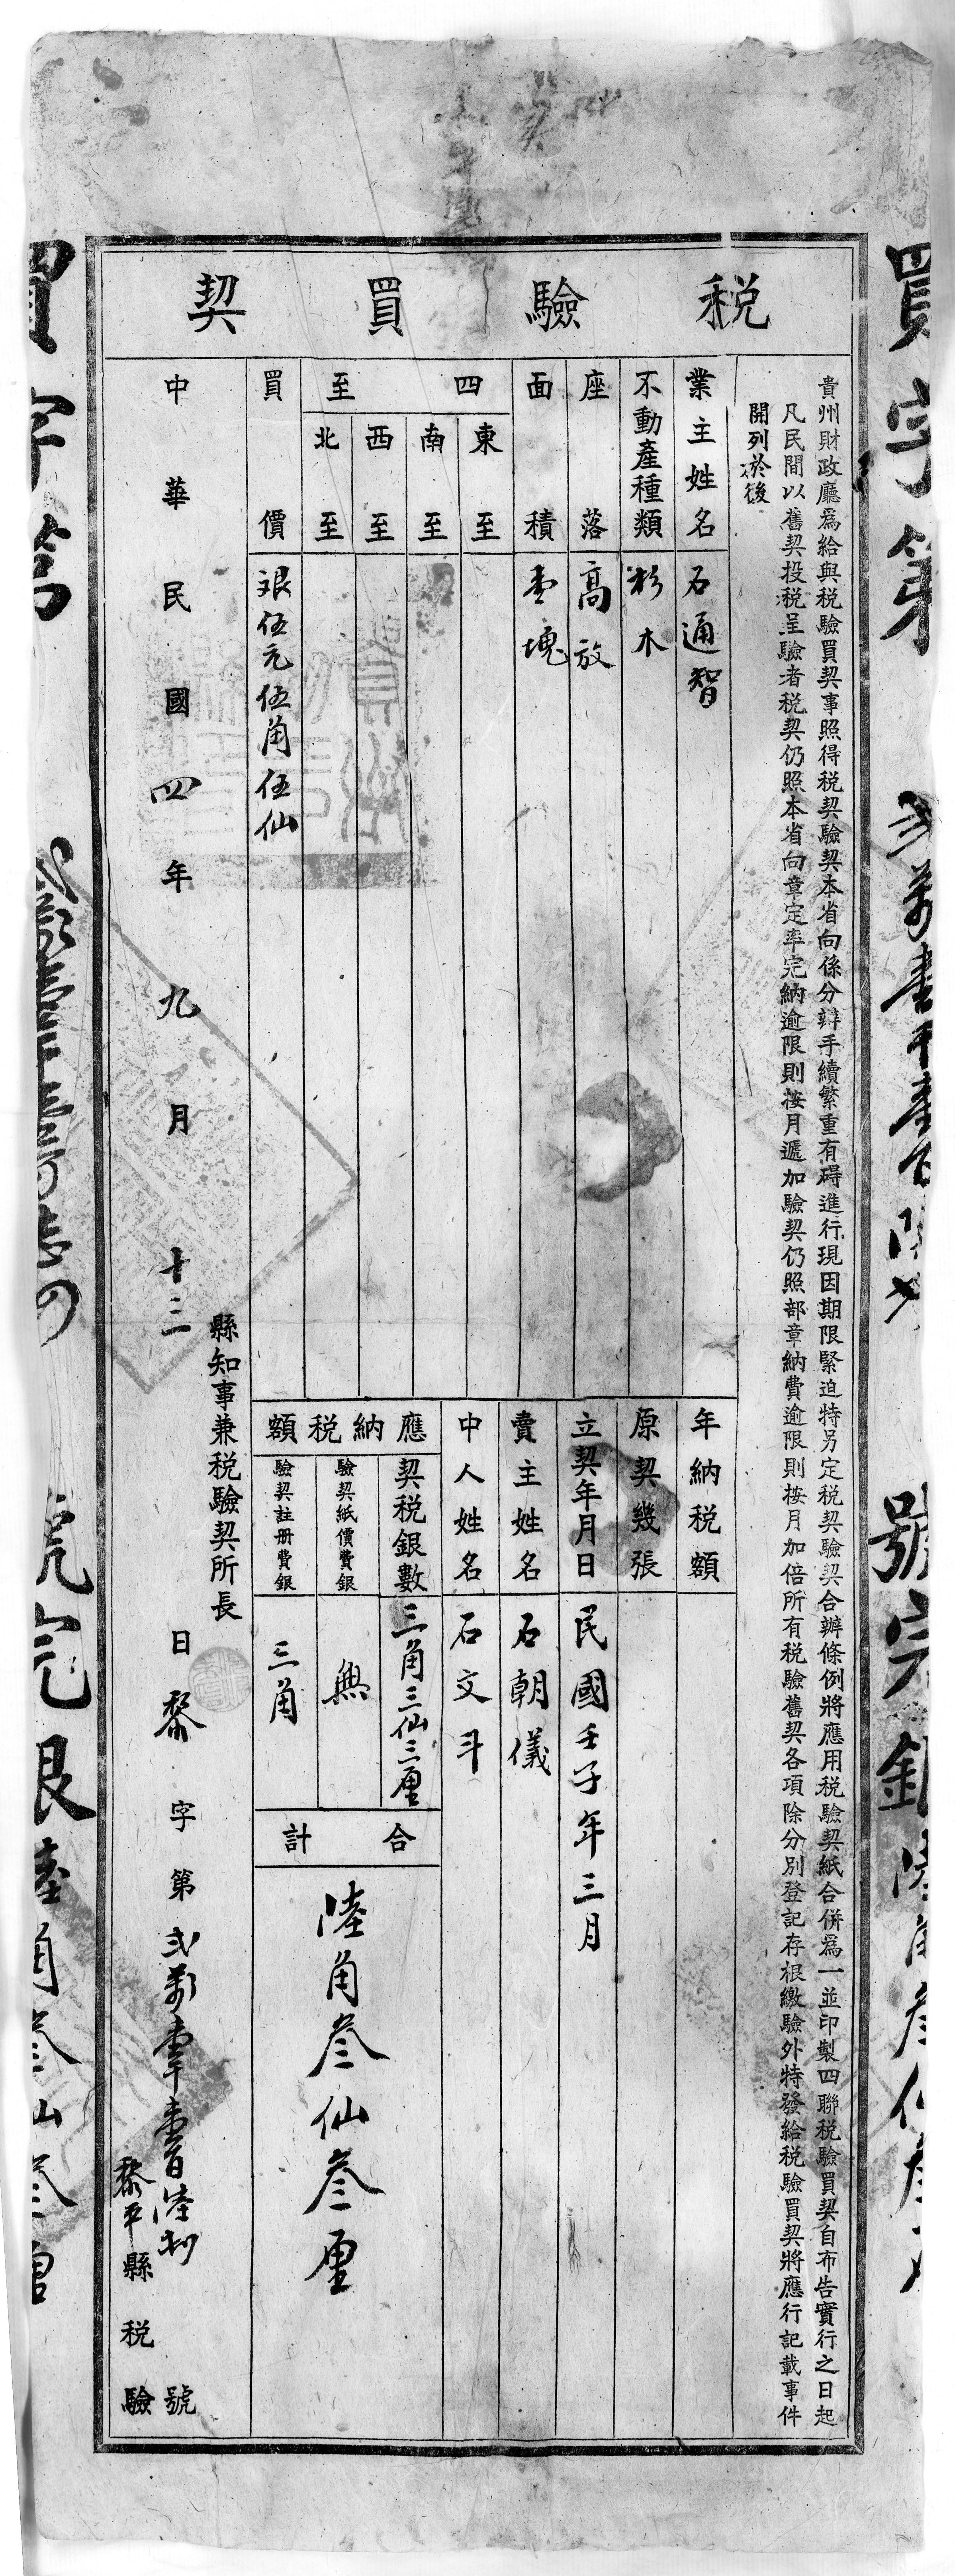 稅驗買契
貴州財政廳爲給與稅驗買契事照得稅契驗契本省向係分辦手續繁重有碍進行現因期限緊迫特另定稅契驗契合辦條例將應用稅驗契紙合併爲一並印製四聯稅驗買契自布告實行之日起
凡民間以舊契投稅呈驗者稅契仍照本省向章定率完納逾限則按月遞加驗契仍照部章納費逾限則按月加倍所有稅驗舊契各項除分別登記存根繳驗外特發給稅驗買契將應行記載事件
開列於後
業主姓名 石通智
不動產種類 杉木
座落 高放
面積 壹塊
四至
東至
南至
西至
北至
買價 銀伍元伍角伍仙
年納稅額
原契幾張
立契年月日 民國壬子年三月
賣主姓名 石朝儀
中人姓名 石文斗
應納稅額
契稅銀數 三角三仙三厘
驗契紙價費銀 無
驗契註册費銀 三角
合計
陸角叁仙叁厘
縣知事兼稅驗契所長
中華民國四年九月十三日黎字第弍萬壹千壹百陸拾號
黎平縣稅驗
買字第弍萬壹千壹百陸 號完銀陸角叁仙叁
買字第 號完銀陸角叁仙叁